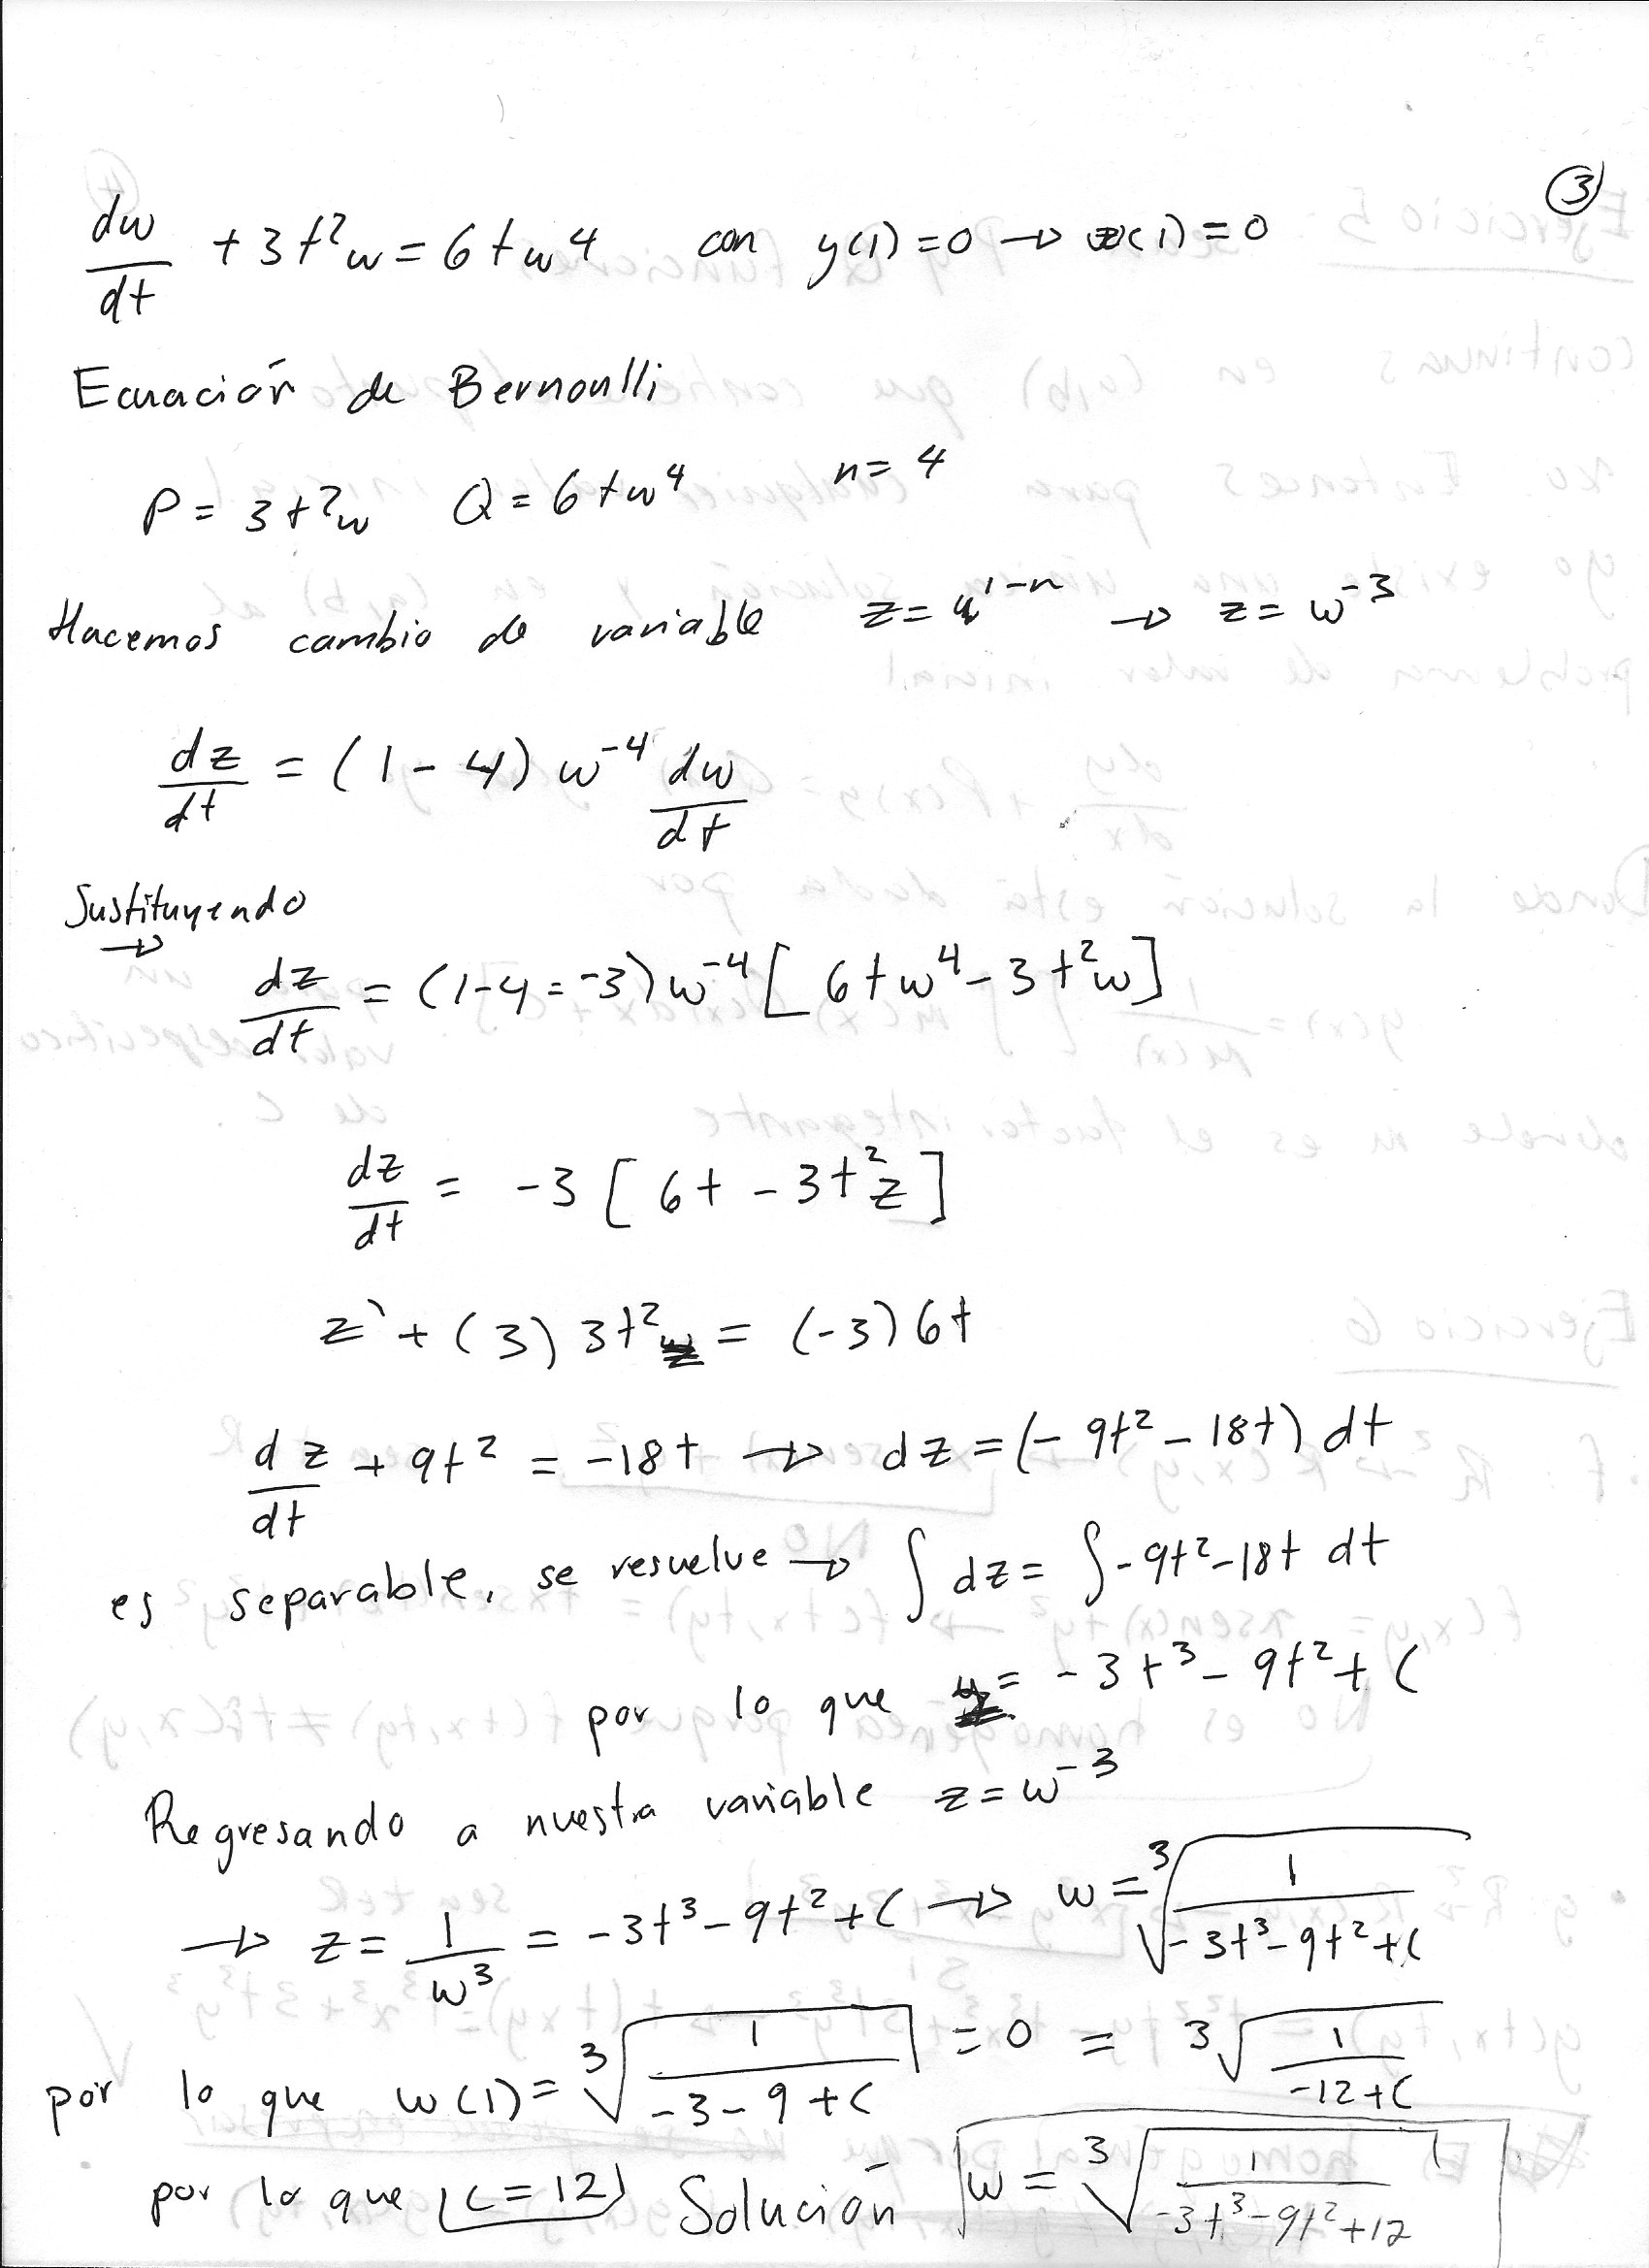 ③
dw/dt + 3t²w = 6tw⁴ con y(1)=0 → w(1)=0
Ecuación de Bernoulli
P = 3t²w Q = 6tw⁴ n=4
Hacemos cambio de variable z = w¹⁻ⁿ → z = w⁻³
dz/dt = (1-4) w⁻⁴ dw/dt
Sustituyendo
→ dz/dt = (1-4=-3) w⁻⁴ [6tw⁴ - 3t²w]
dz/dt = -3 [6t - 3t²z]
z' + (3) 3t² = (-3) 6t
dz/dt + 9t² = -18t → dz = (-9t² - 18t) dt
es separable, se resuelve → ∫ dz = ∫ -9t² - 18t dt
por lo que z = -3t³ - 9t² + C
Regresando a nuestra variable z = w⁻³
→ z = 1/w³ = -3t³ - 9t² + C → w = ³√(1/(-3t³ - 9t² + C))
por lo que w(1) = ³√(1/(-3 - 9 + C)) = 0 = ³√(1/(-12 + C))
por lo que C = 12 Solución w = ³√(1/(-3t³ - 9t² + 12))